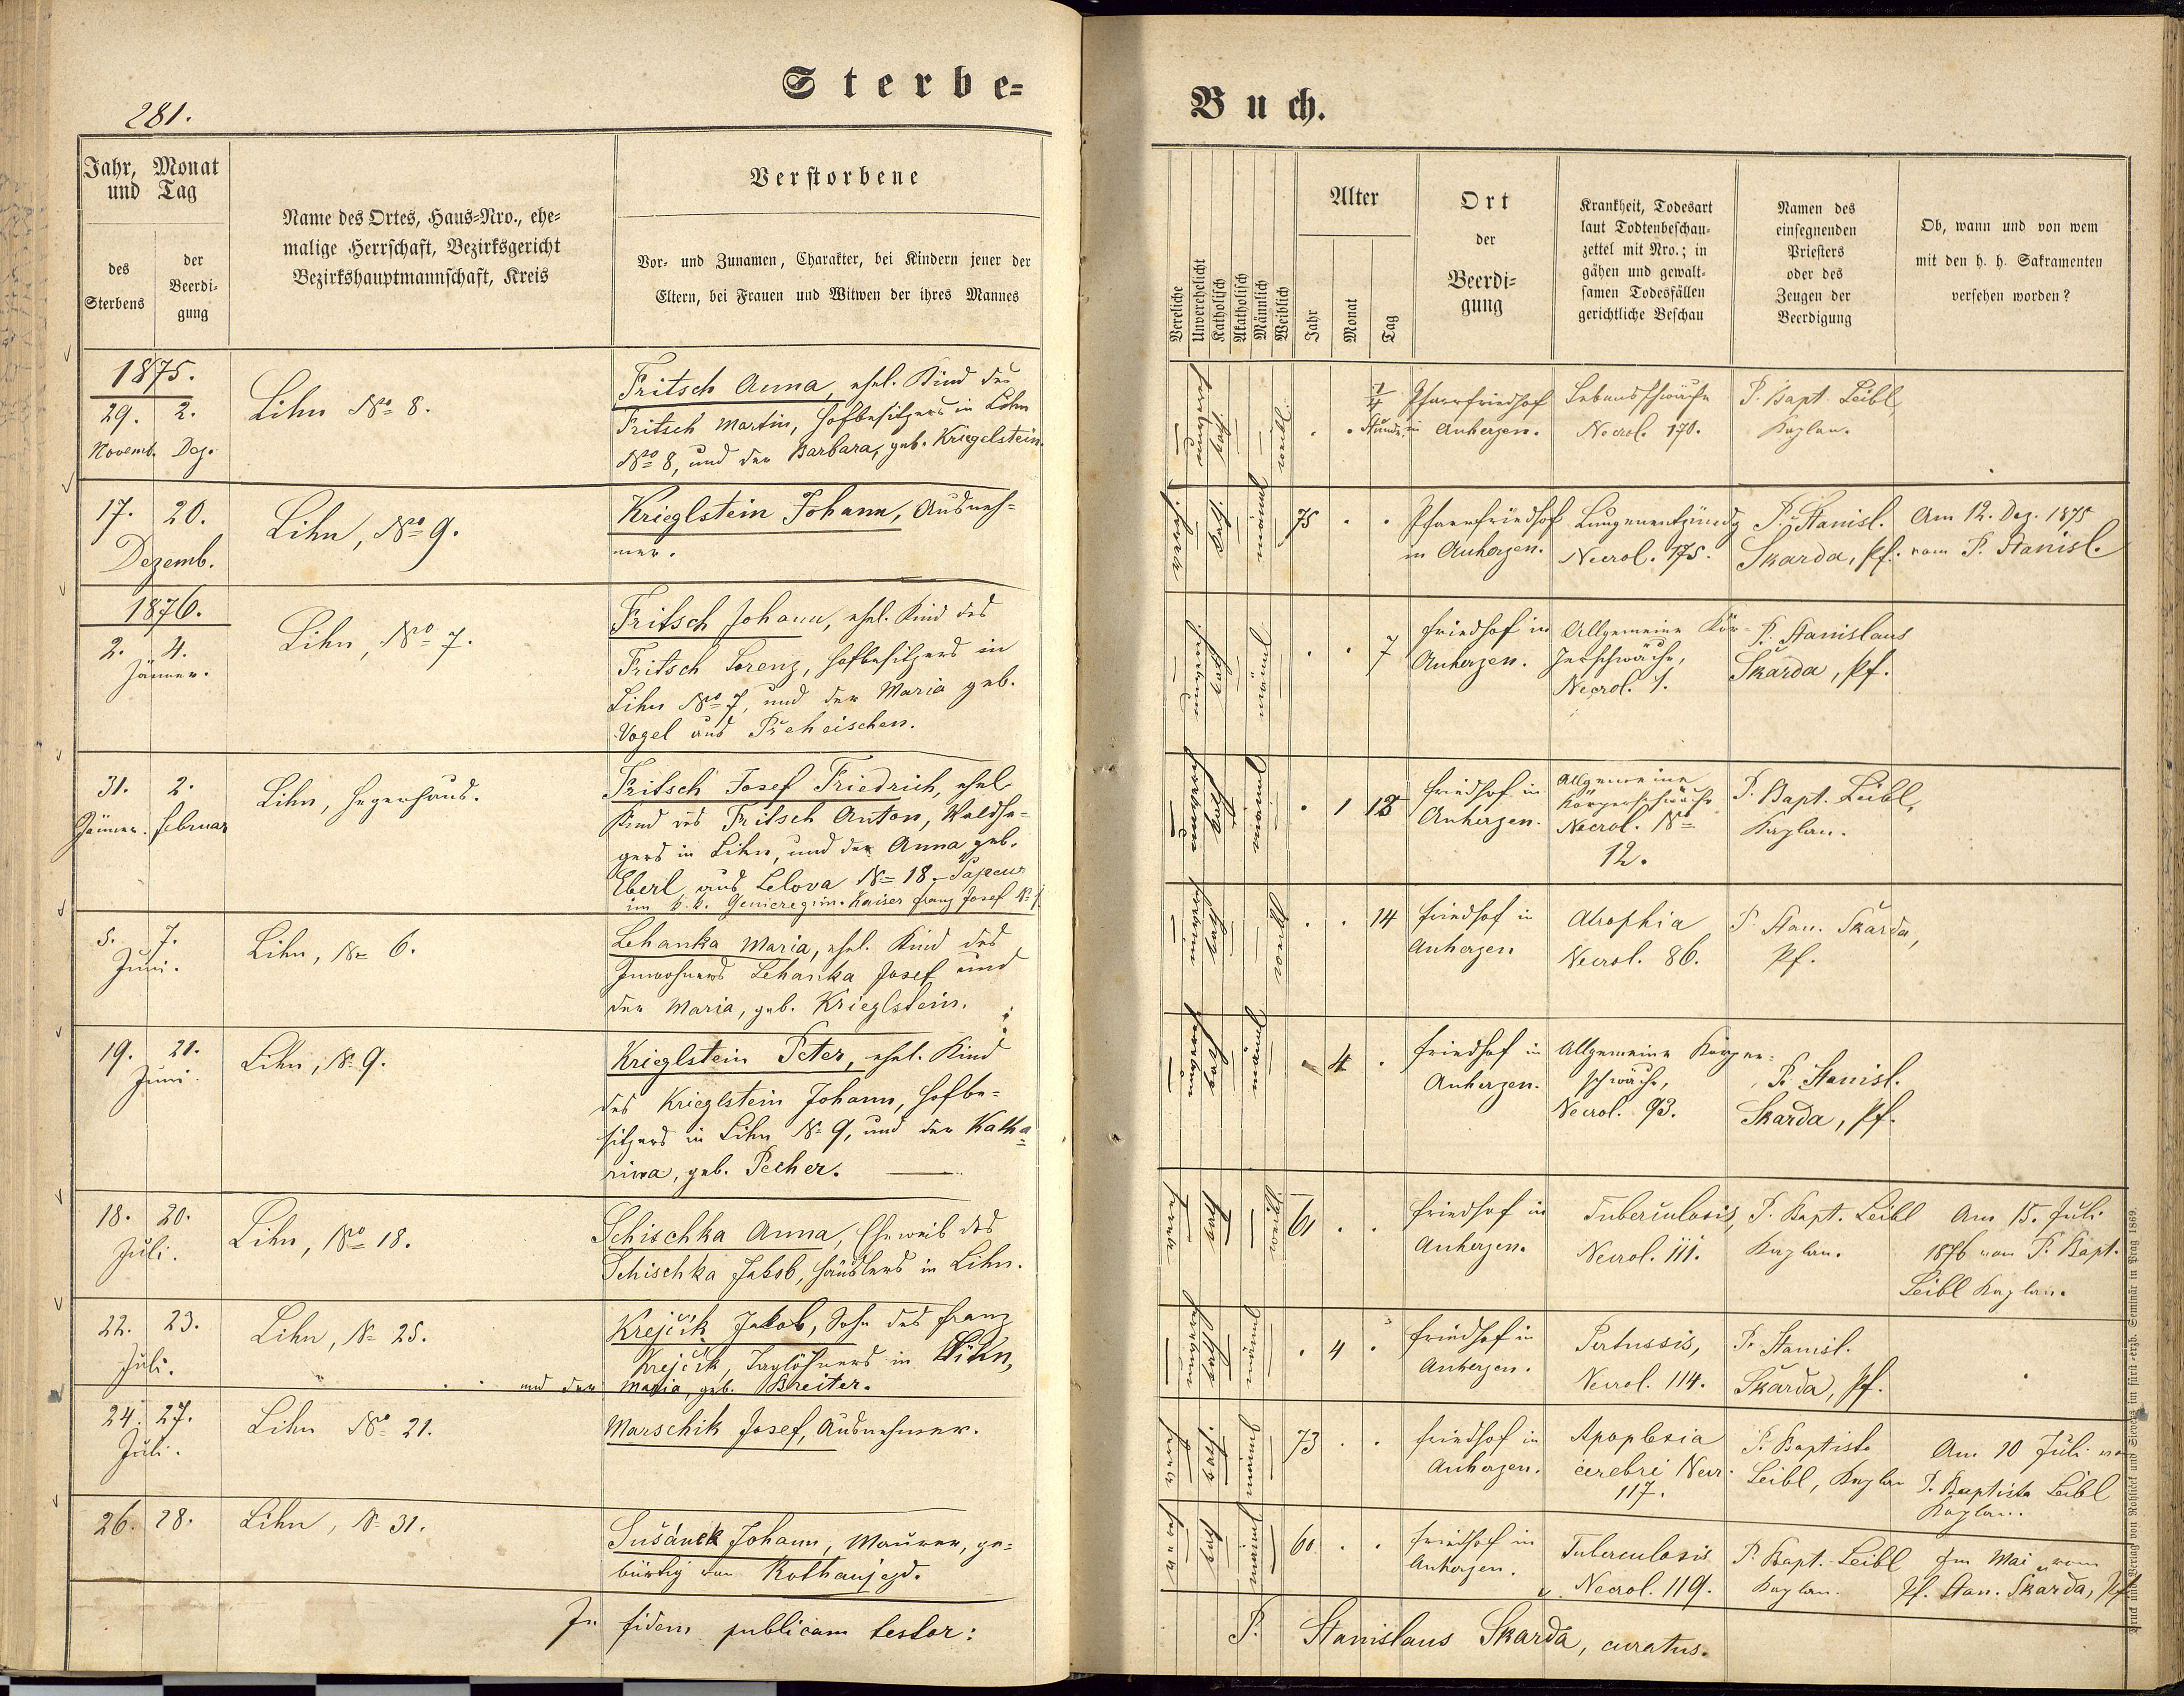 Sterbe=
281.
Jahr, Monat
und Tag
des
Sterbens
der
Beerdi-
gung
Name des Ortes, Haus-Nro., ehe-
malige Herrschaft, Bezirksgericht
Bezirkshauptmannschaft, Kreis
Verstorbene
Vor- und Zunamen, Charakter, bei Kindern jener der
Eltern, bei Frauen und Witwen der ihres Mannes
1875.
29. 2.
Novemb. Dez.
Lihn No 8.
Fritsch Anna, ehel. Kind des
Fritsch Martin, Hofbesitzers in Lihn
No 8, und der Barbara, geb. Kriegelstein.
17. 20.
Dezemb.
Lihn, No 9.
Krieglstein Johann, Ausneh=
mer.
1876.
2. 4.
Jänner.
Lihn, No 7.
Fritsch Johann, ehel. Kind des
Fritsch Lorenz, Hofbesitzers in
Lihn No 7, und der Maria geb.
Vogel aus Přeheischen.
31. 2.
Jänner. Februar
Lihn, Hegerhaus.
Fritsch Josef Friedrich, ehel
Kind des Fritsch Anton, Waldhe=
gers in Lihn, und der Anna geb.
Eberl aus Lelova No 18 - Sapeur
im k. k. Genieregim. Kaiser Franz Josef No 1.
5. 7.
Juni.
Lihn, No 6.
Lehanka Maria, ehel. Kind des
Inwohners Lehanka Josef und
der Maria, geb. Krieglstein.
19. 21.
Juni.
Lihn, No 9.
Krieglstein Peter, ehel. Kind
des Krieglstein Johann, Hofbe=
sitzers in Lihn No 9, und der Katha=
rina, geb. Pecher.
18. 20.
Juli.
Lihn, No 18.
Schischka Anna, Eheweib des
Schischka Jakob, Häuslers in Lihn.
22. 23.
Juli.
Lihn, No 25.
Krejčik Jakob, Sohn des Franz
Krejčik, Taglöhners in Lihn,
und der Maria, geb. Breiter.
24. 27.
Juli.
Lihn No 21.
Marschik Josef, Ausnehmer.
26. 28.
Lihn, No 31.
Sušánek Johann, Maurer, ge=
bürtig von Rothaujezd.
In fidem publicam testor:
Buch.
Vereliche
Unverehelicht
Katholisch
Akatholisch
Männlich
Weiblich
Alter
Jahr
Monat
Tag
Ort
der
Beerdi-
gung
Krankheit, Todesart
laut Todtenbeschau-
zettel mit Nro.; in
gähen und gewalt-
samen Todesfällen
gerichtliche Beschau
Namen des
einsegnenden
Priesters
oder des
Zeugen der
Beerdigung
Ob, wann und von wem
mit den h. h. Sakramenten
versehen worden?
kath weibl.
Stunde
Pfarrfriedhof
in Anherzen.
Lebensschwäche
Necrol. 170.
P. Bapt. Leibl,
Kaplan.
kath. männl
75
Pfarrfriedhof
in Anherzen.
Lungenentzündg
Necrol. 175.
P. Stanisl.
Skarda, Pf.
Am 12. Dez. 1875
vom P. Stanisl.
kath männl
7
Friedhof in
Anherzen.
Allgemeine Kör-
perschwäche,
Necrol. 1.
P. Stanislaus
Skarda, Pf.
kath männl
1 18
Friedhof in
Anherzen.
Allgemeine
Körperschwäche
Necrol. No
12.
P. Bapt. Leibl,
Kaplan.
kath weibl
14
Friedhof in
Anherzen
Atrophia
Necrol. 86.
P. Stan. Skarda,
Pf.
kath männl
4
Friedhof in
Anherzen.
Allgemeine Körper=
schwäche,
Necrol. 93.
P. Stanisl.
Skarda, Pf.
kath weibl
61
Friedhof in
Anherzen.
Tuberculosis,
Necrol. 111.
P. Bapt. Leibl
Kaplan.
Am 15. Juli
1876 vom P. Bapt.
Leibl Kaplan.
kath männl
4
Friedhof in
Anherzen.
Pertussis,
Necrol. 114.
P. Stanisl.
Skarda, Pf.
kath. männl
73
Friedhof in
Anherzen.
Apoplexia
cerebri Necr.
117.
P. Baptista
Leibl, Kaplan
Am 10 Juli von
P. Baptista Leibl
Kaplan.
kath männl
60
Friedhof in
Anherzen.
Tuberculosis
Necrol. 119.
P. Bapt. Leibl
Kaplan.
Im Mai vom
Pf. Stan. Skarda, Pf.
P. Stanislaus Skarda, curatus.